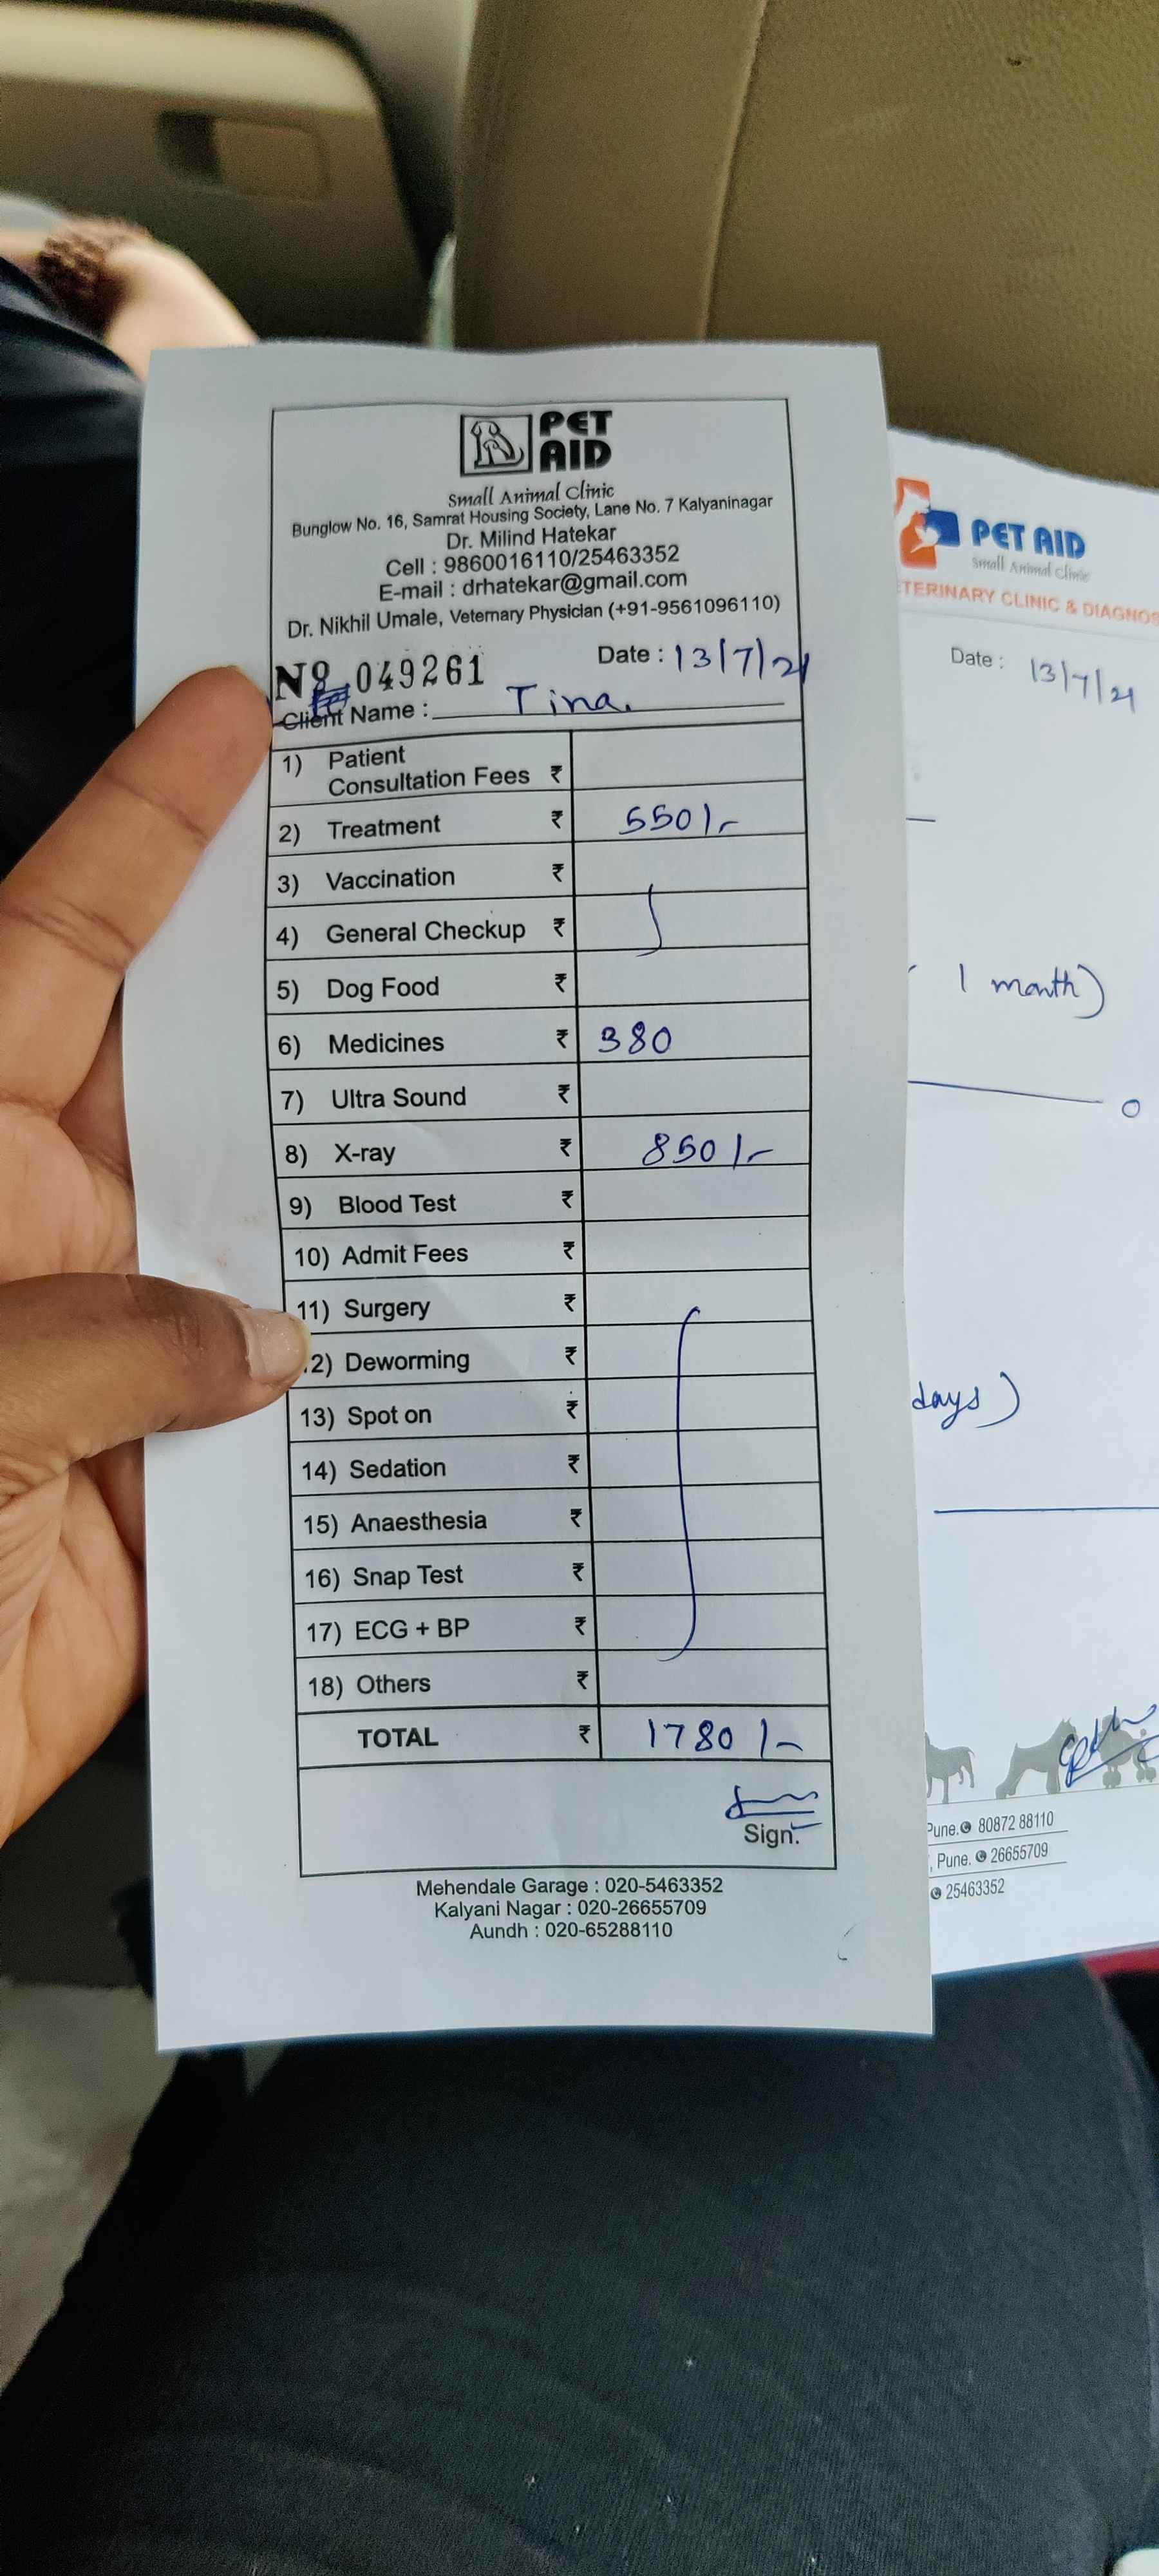 PET
AID
Small Animal Clinic
Bunglow No. 16, Samrat Housing Society, Lane No. 7 Kalyaninagar
Dr. Milind Hatekar
Cell : 9860016110/25463352
E-mail : drhatekar@gmail.com
Dr. Nikhil Umale, Veternary Physician (+91-9561096110)
No 049261 Date : 13/7/21
Client Name : Tina.
1) Patient
Consultation Fees ₹
2) Treatment ₹ 550/-
3) Vaccination ₹
4) General Checkup ₹
5) Dog Food ₹
6) Medicines ₹ 380
7) Ultra Sound ₹
8) X-ray ₹ 850/-
9) Blood Test ₹
10) Admit Fees ₹
11) Surgery ₹
2) Deworming ₹
13) Spot on ₹
14) Sedation ₹
15) Anaesthesia ₹
16) Snap Test ₹
17) ECG + BP ₹
18) Others ₹
TOTAL ₹ 1780/-
Sign.
Mehendale Garage : 020-5463352
Kalyani Nagar : 020-26655709
Aundh : 020-65288110
PET AID
Small Animal Clinic
TERINARY CLINIC & DIAGNOS
Date : 13/7/21
1 month)
days)
Pune. 80872 88110
, Pune. 26655709
25463352